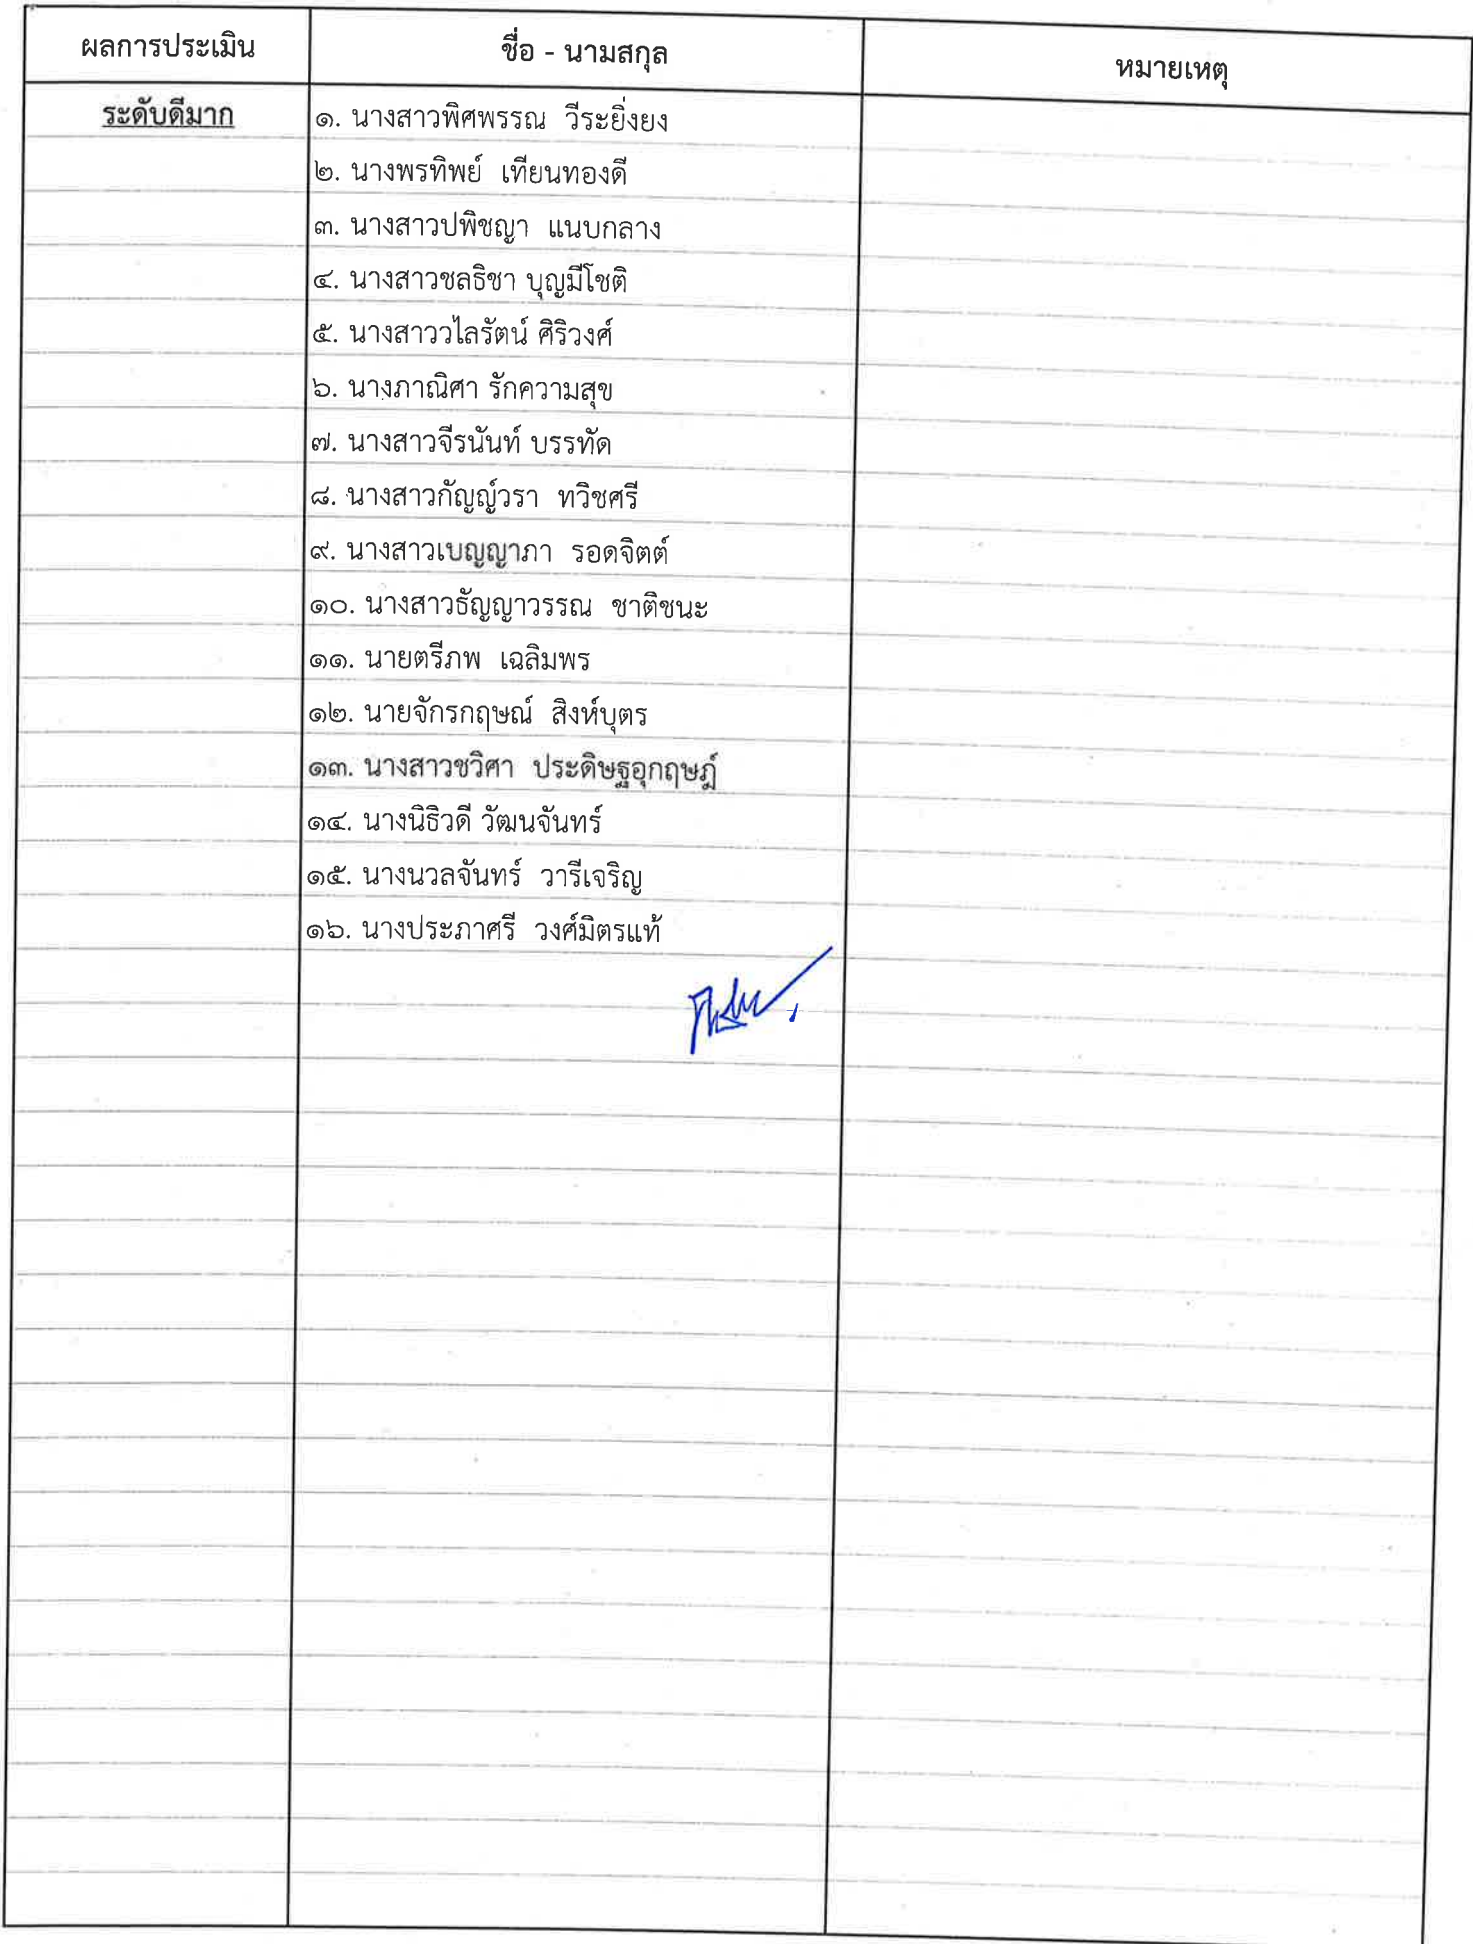 ผลการประเมิน ชื่อ - นามสกุล หมายเหตุ
ระดับดีมาก ๑. นางสาวพิศพรรณ วีระยิ่งยง
๒. นางพรทิพย์ เทียนทองดี
๓. นางสาวปพิชญา แนบกลาง
๔. นางสาวชลธิชา บุญมีโชติ
๕. นางสาววไลรัตน์ ศิริวงศ์
๖. นางภาณิศา รักความสุข
๗. นางสาวจีรนันท์ บรรทัด
๘. นางสาวกัญญ์วรา ทวิชศรี
๙. นางสาวเบญญาภา รอดจิตต์
๑๐. นางสาวธัญญาวรรณ ชาติชนะ
๑๑. นายตรีภพ เฉลิมพร
๑๒. นายจักรกฤษณ์ สิงห์บุตร
๑๓. นางสาวชวิศา ประดิษฐอุกฤษฎ์
๑๔. นางนิธิวดี วัฒนจันทร์
๑๕. นางนวลจันทร์ วารีเจริญ
๑๖. นางประภาศรี วงศ์มิตรแท้